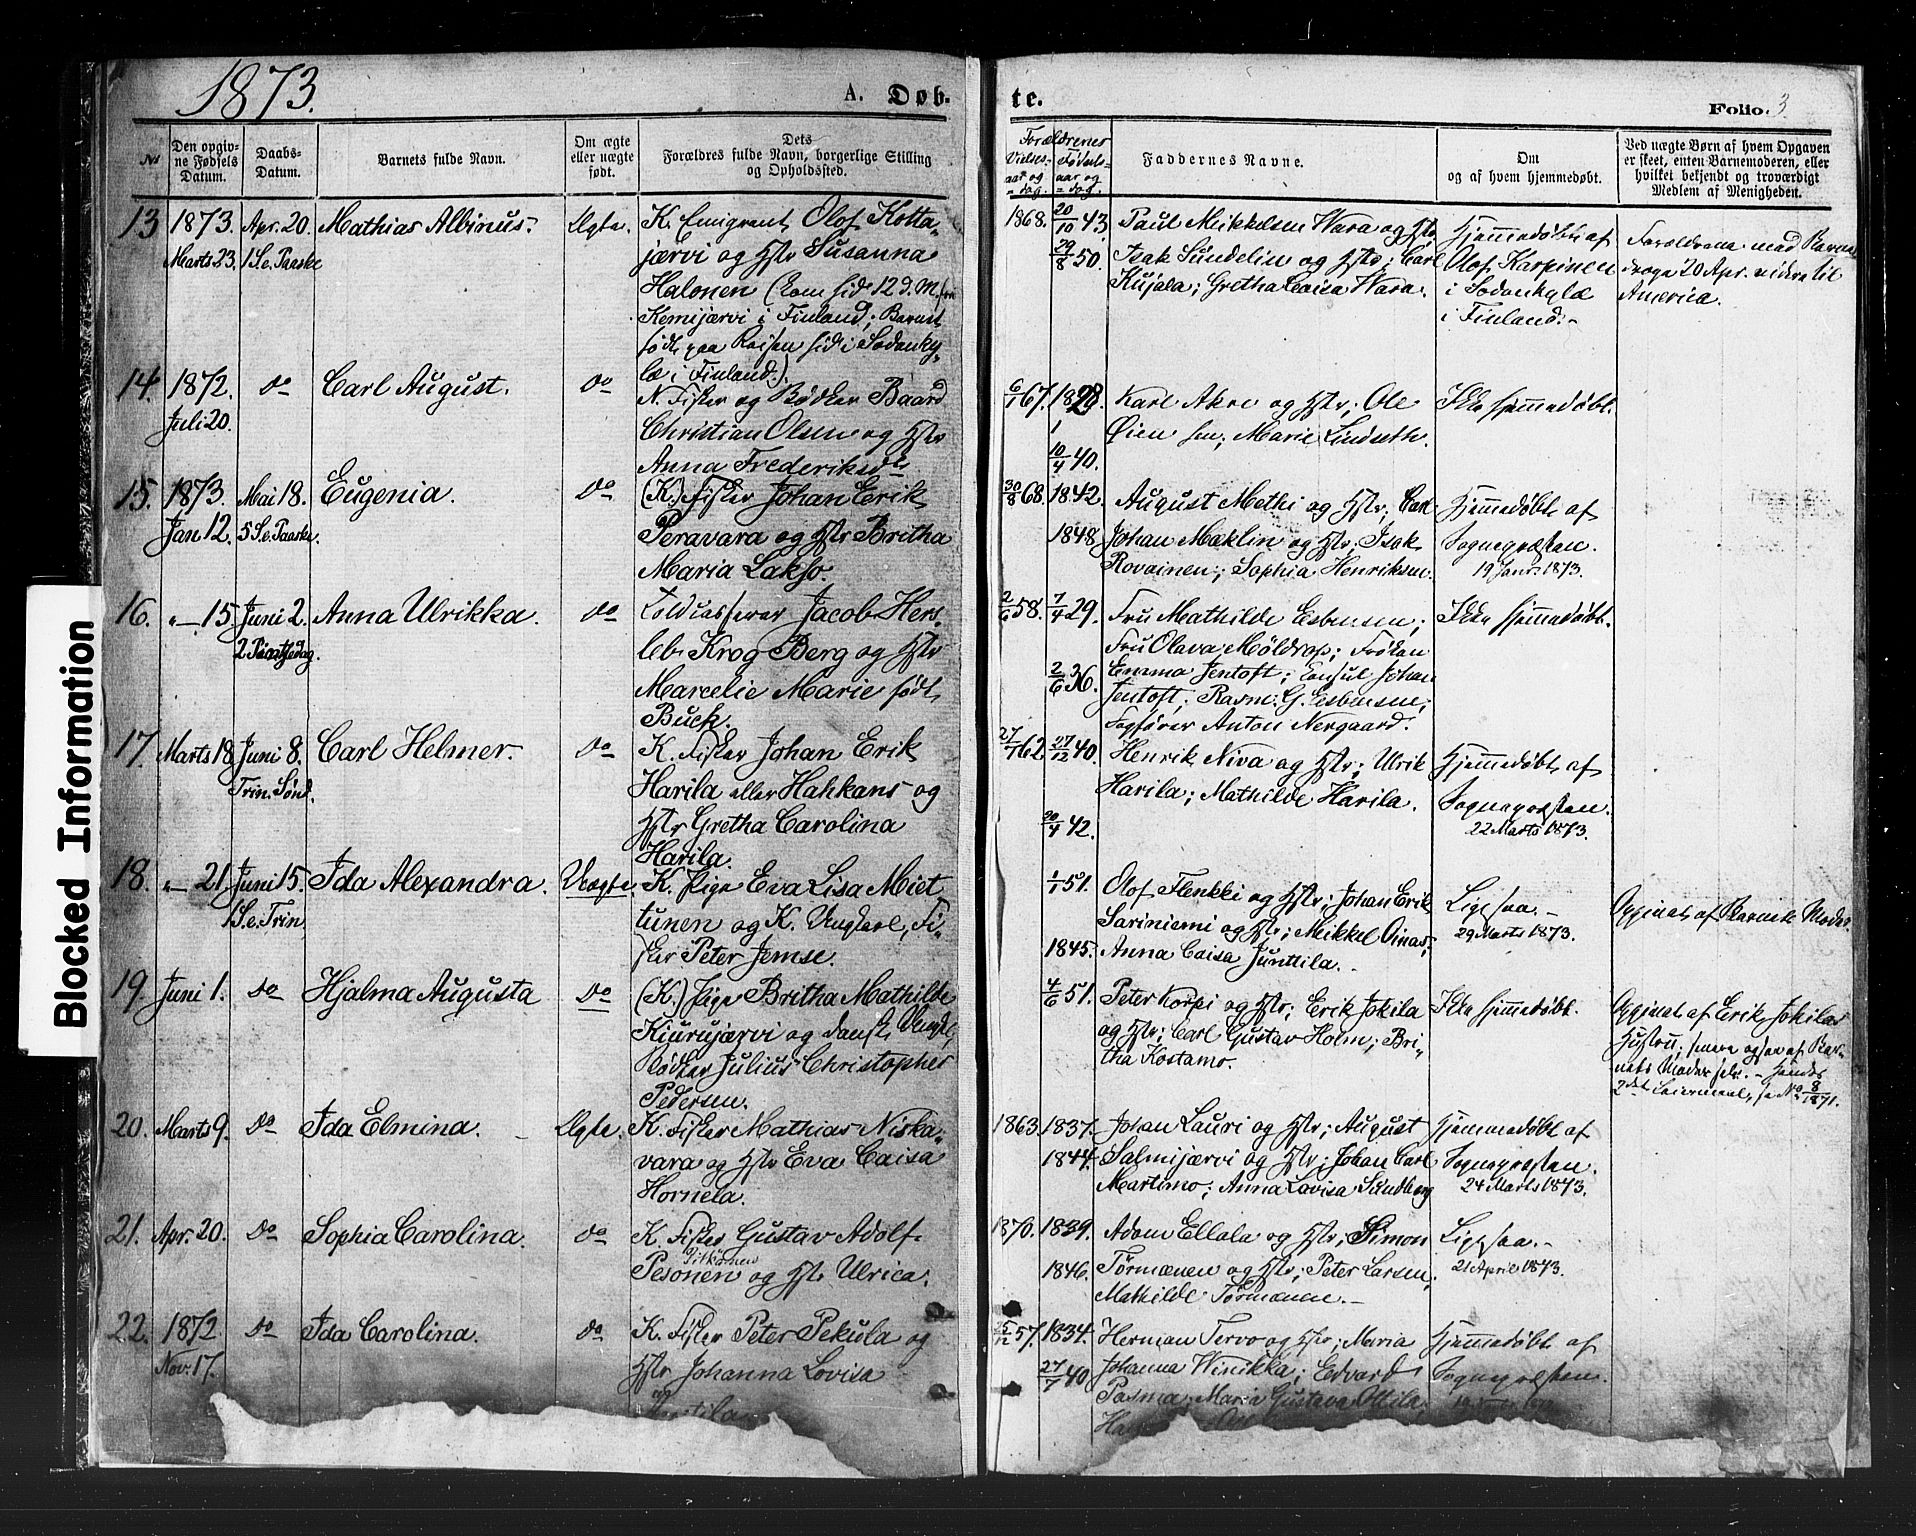 1873.
A. Døb-
te.
Folio. 3
№
Den opgiv-
ne Fødsels
Datum.
Daabs-
Datum.
Barnets fulde Navn.
Om ægte
eller uægte
født.
Dets
Forældres fulde Navn, borgerlige Stilling
og Opholdssted.
Forældrenes
Vielses-
aar og
=dag.
Fødsels-
aar og
=dag.
Faddernes Navne.
Om
og af hvem hjemmedøbt.
Ved uægte Børn af hvem Opgaven
er skeet, enten Barnemoderen, eller
hvilket bekjendt og troværdigt
Medlem af Menigheden.
13 1873. Apr. 20. Mathias Albinus. Ægte. K. Emigrant Olof Kotta-
Marts 23. 1 S. e. Paaske järvi og Hstr Susanna
Halonen (kom hid 12 d. M. fra
Kemijærvi i Finland; Barnet
født paa Reisen hid i Sodanky-
læ i Finland.)
14. 1872. do Carl August. do N. Fisker og Bødker Baard
Juli 20. Christian Olsen og Hstr
Anna Frederiksdr
15. 1873. Mai 18. Eugenia. do (K.) Fisker Johan Erik
Jan 12. 5 S. e. Paaske. Peravara og Hstr Britha
Maria Lakso.
16. "— 15. Juni 2. Anna Ulrikka. do Toldkasserer Jacob Hers-
2 Pintsedag. leb Krog Berg og Hstr
Marcelie Marie født
Buck.
17. Marts 18. Juni 8. Carl Helmer. do K. Fisker Johan Erik
Trin. Sønd. Harila eller Hahkans og
Hstr Gretha Carolina
Harila.
18. "— 21. Juni 15. Ida Alexandra. Uægte. K. Pige Eva Lisa Miet
1 S. e. Trin tunen og K. Ungkarl, Fi-
sker Peter Jemse.
19 Juni 1. do Hjalma Augusta do (K.) Pige Britha Mathilde
Kiurujærvi og dansk Ungk.,
Bødker Julius Christopher
Pedersen.
20. Marts 9. do Ida Elmina. Ægte. K. Fisker Mathias Niska-
vara og Hstr Eva Caisa
Hornela.
21. Apr. 20. do Sophia Carolina. do K. Fisker Gustav Adolf
Pesonen og Hstr Ulrica.
22. 1872 do Ida Carolina. do K. Fisker Peter Pekula og
Nov. 17. Hstr Johanna Lovisa
1868. 20/10 43. Paul Mikkelsen Wara og Hstr; Hjemmedøbt af Forældrene med Barnet
29/8 50. Isak Sundelin og Hstr; Carl Olof Karpinen droge 20 Apr. videre til
Kujala; Gretha Caisa Wara. i Sodankylæ America.
i Finland.-
6/1 67. 1828. Karl Akre og Hstr; Ole Ikke hjemmedøbt.
Øien sen; Marie Lindseth.
10/4 40.
30/8 68. 1842. August Methi og Hstr; Carl Hjemmedøbt af
1848. Johan Maklin og Hstr; Isak Sognepræsten.
Rovainen; Sophia Henriksen. 19 Janr 1873.
2/6 58. 7/4 29. Fru Mathilde Esbensen; Ikke hjemmedøbt.
Fru Olava Möldrop; Frøken
2/6 36. Emma Jentoft; Consul Johan
Jentoft; Rasm: G. Esbensen;
Fogfører Anton Nergaard.
27/7 62. 27/12 40. Henrik Niva og Hstr; Ulrik Hjemmedøbt af
Harila; Mathilde Harila. Sognepræsten.
20/4 42. 22 Marts 1873.
1/1 51. Olof Flenkki og Hstr; Johan Erik Ligesaa.-
Sariniemi og Hstr; Mikkel Oinas; 29 Marts 1873. Opgivet af Barnets Moder.
1845. Anna Caisa Junttila.
4/6 51. Peter Korpi og Hstr; Erik Jokila Ikke hjemmedøbt. Opgivet af Erik Jokilas
og Hstr; Carl Gustav Holm; Bri- Hustru; senere ogsaa af Bar-
tha Kostamo. nets Moder selv. – Hendes
2det Leiermaal, se No 8/1871.
1863. 1837. Johan Lauri og Hstr; August Hjemmedøbt af
1844. Salmijærvi og Hstr; Johan Carl Sognepræsten.
Martimo; Anna Lovisa Sundberg 24 Marts 1873.
1870. 1839. Adam Ellala og Hstr; Simon Ligesaa.-
1846. Törmænen og Hstr; Peter Larsen; 21 April 1873.
Mathilde Törmænen.-
25/12 57. 1834. Herman Tervo og Hstr; Maria Hjemmedøbt af
27/7 40 Johanna Winikka; Edvard Sognepræsten.
Pasma; Maria Gustava Ottila;
Blocked Information